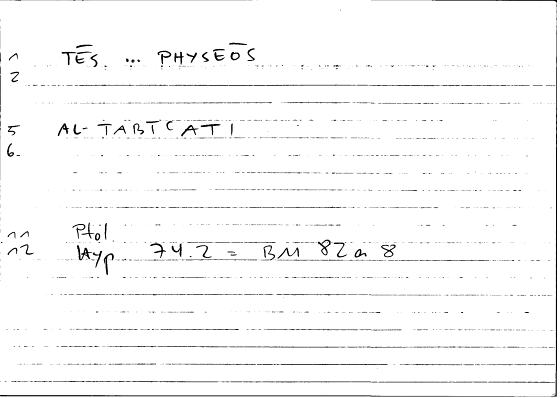 1 TĒS ... PHYSEŌS
2
5 AL-TABICATI
6.
11 Ptol
12 Hyp 74.2 = BM 82a 8